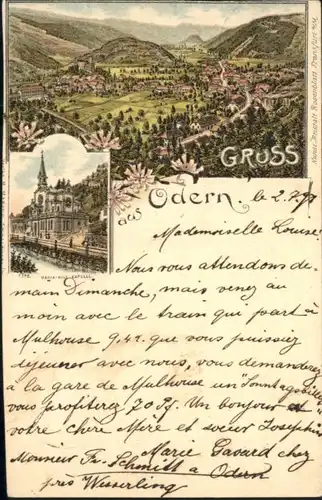 GRUSS
aus Odern. le 2.7.97
Mademoiselle Louise!
Nous vous attendons de-
main Dimanche, mais venez au
moin avec le train qui part à
Mulhouse 9.42. que vous puissiez
déjeuner avec nous, vous demanderez
à la gare de Mulhouse un "Sonntagsbillet"
vous profiterez 70 Pf. Un bonjour et
votre chère Mère et soeur Josephin
Marie Gasard chez
Monieur Fr. Schmitt à Odern
près Wesserling